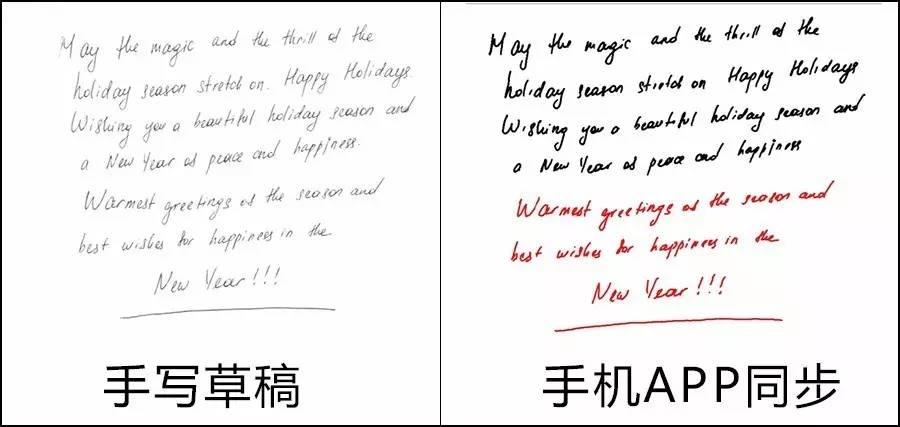 May the magic and the thrill of the
holiday season stretch on. Happy Holidays.
Wishing you a beautiful holiday season and
a New Year of peace and happiness.
Warmest greetings of the season and
best wishes for happiness in the
New Year!!!
手写草稿
May the magic and the thrill of the
holiday season stretch on Happy Holidays
Wishing you a beautiful holiday season and
a New Year of peace and happiness
Warmest greetings of the season and
best wishes for happiness in the
New Year!!!
手机APP同步